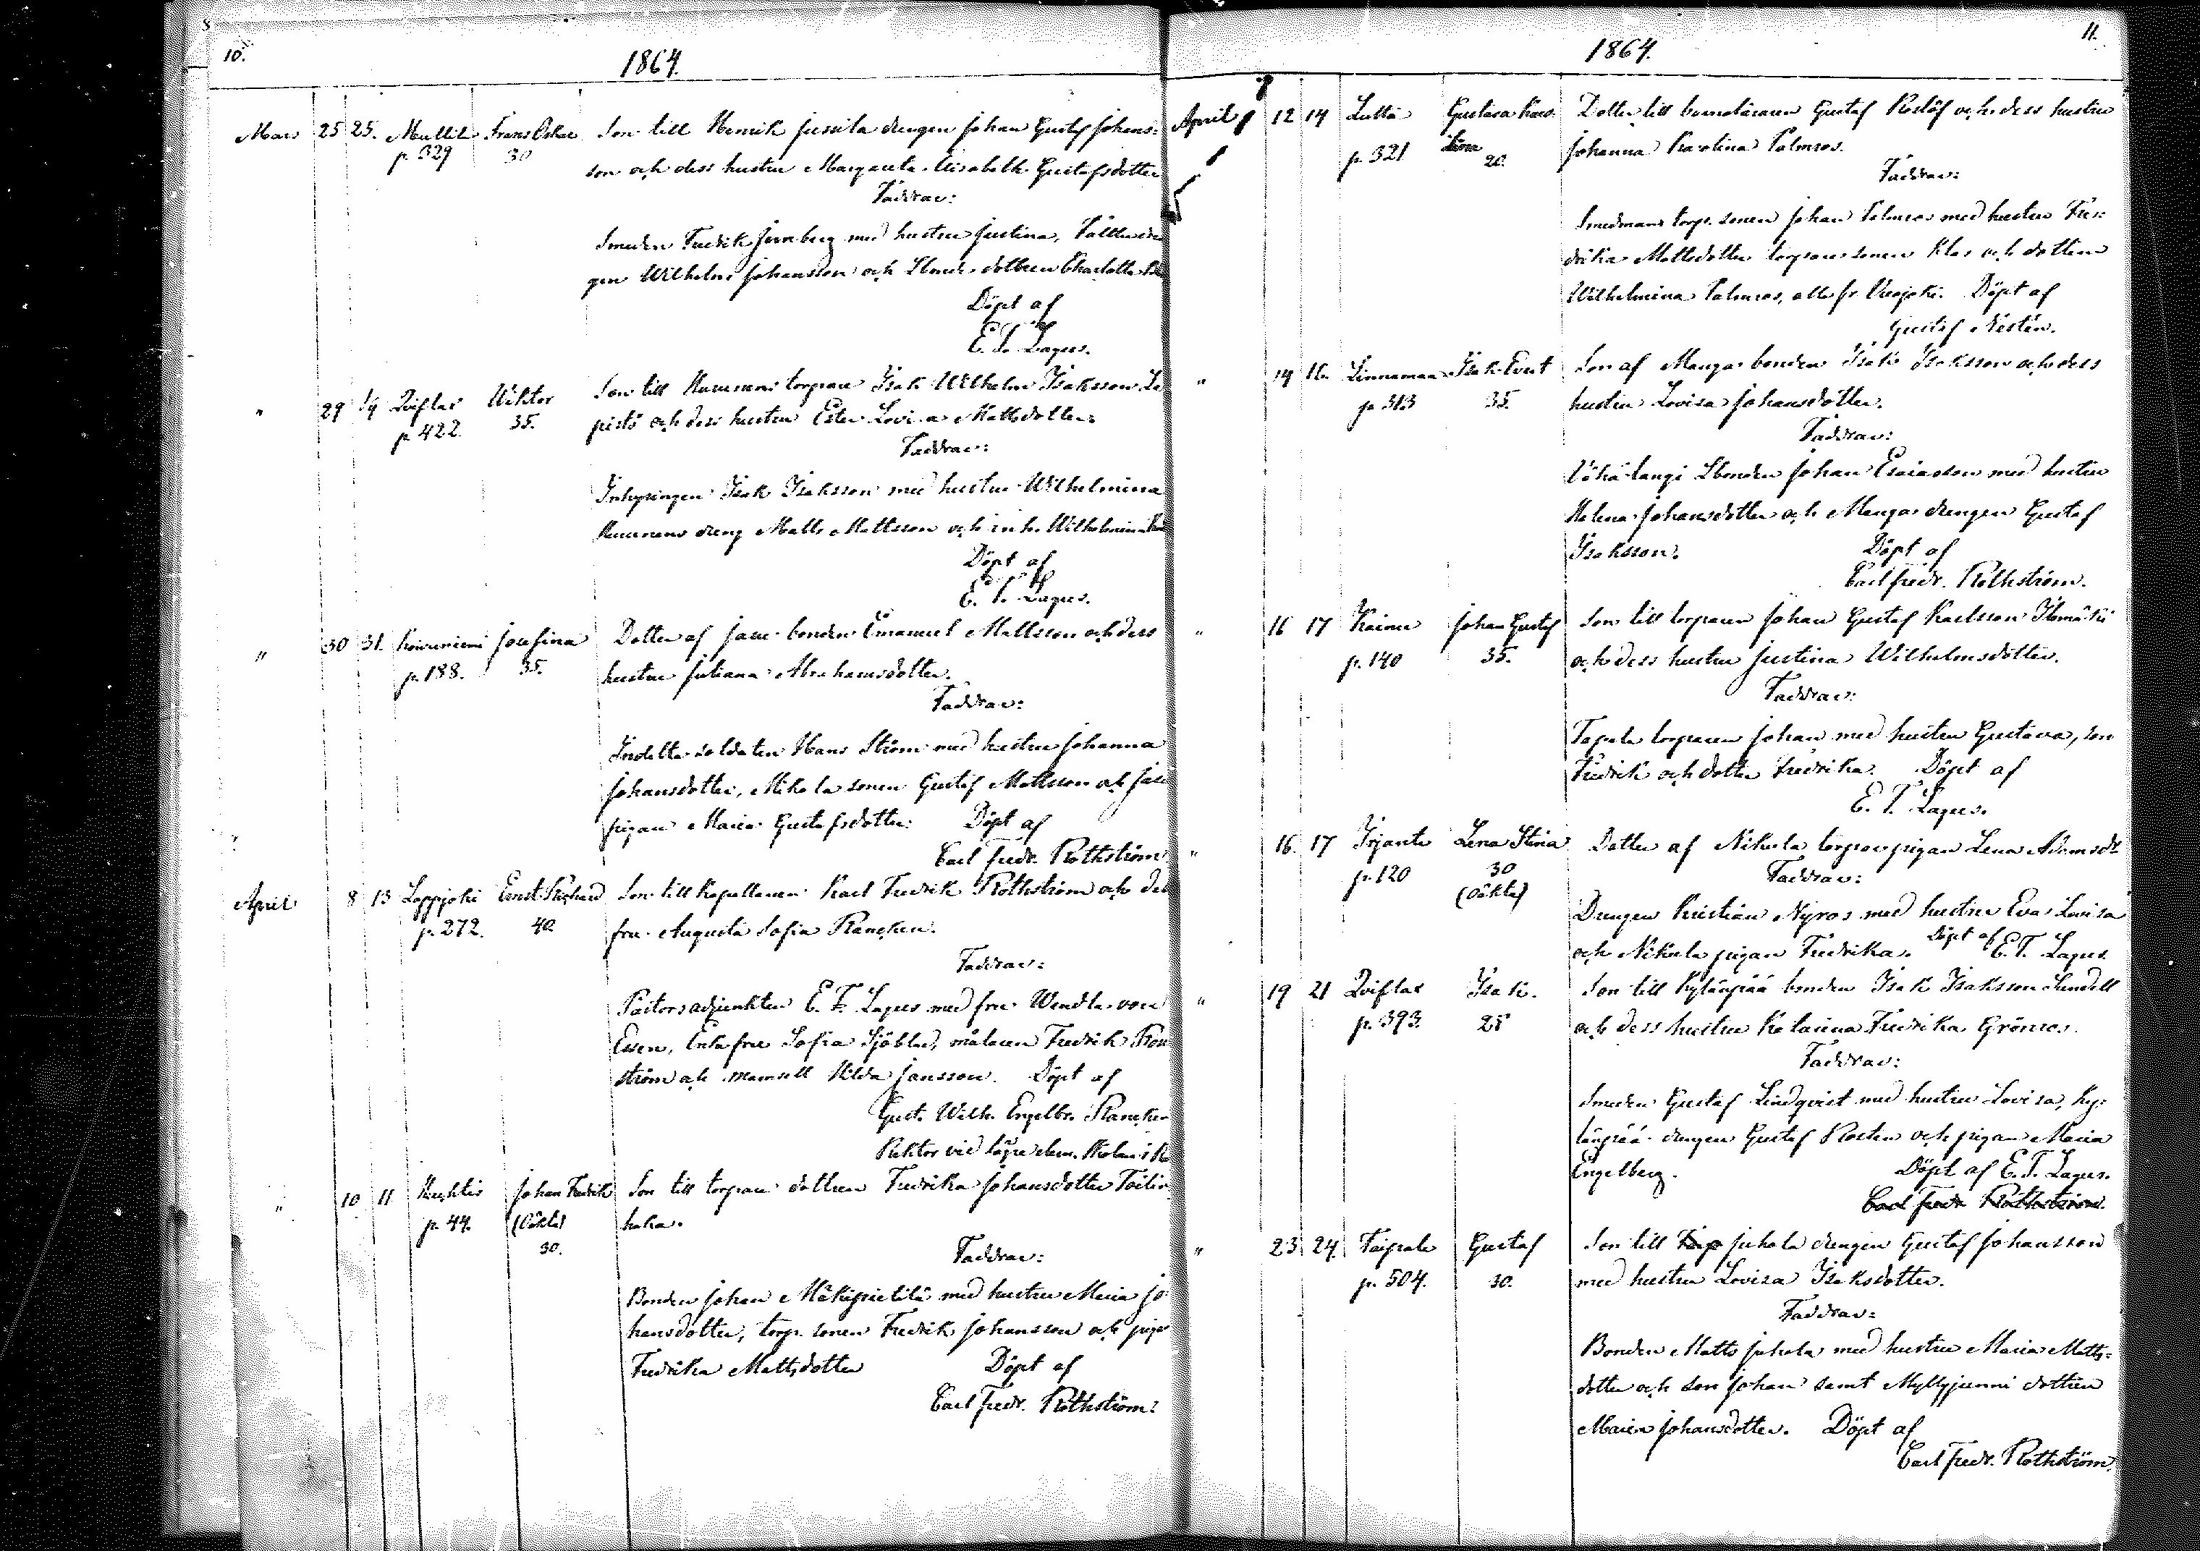 8
10.
1864.
Mars 25 25. Mullila Frans Oskar Son till Henrik Jussila drengen Johan Gustaf Johans-
p. 329 30 son och dess hustru Margareta Elisabeth Gustafsdotter
Faddrar:
Smeden Fredrik Jernberg med hustru Justina,
gen Wilhelm Johansson och dottren Charlotta
Döpt af
E. T. Lagus.
" 29 Qviflax Wiktor Son till torpare Isak Wilhelm Isaksson
p. 422. 35. och dess hustru Ester Lovisa Mattsdotter.
Faddrar:
Inhysingen Isak Isaksson med hustru Wilhelmina
dreng Matts Mattsson och inh. Wilhelmina
Döpt af
E. T. Lagus.
" 30 31. Koivuniemi Josefina Dotter af Jase bonden Emanuel Mattsson och dess
p. 188. 35. hustru Juliana Abrahamsdotter.
Faddrar:
Indelta soldaten Hans Ström med hustru Johanna
Johansdotter, Mikola sonen Gustaf Mattsson och Jase
pigan Maria Gustafsdotter. Döpt af
Carl Fredr. Rothström
April 8 13 Lappjoki Ernst Richard Son till Kapellanen Karl Fredrik Rothström och dess
p. 272. 40. fru Augusta Sofia Rancken.
Faddrar:
Pastorsadjunkten E. T. Lagus med fru Wendla von
Essen, Enkefru Sofia Sjöblad, målaren Fredrik
ström och mamsell Hilda Jansson. Döpt af
Gust. Wilh. Engelbr. Rancken
Rektor vid lägre elem. skolan i
" 10 11 Kuhtis Johan Fredrik Son till torpare dottren Fredrika Johansdotter
p. 44. (Oäkta)
30.
Faddrar:
Bonden Johan Mäkipietilä med hustru Maria Jo-
hansdotter, torp. sonen Fredrik Johansson och pigan
Fredrika Mattsdotter Döpt af
Carl Fredr. Rothström.
11.
1864.
April 12 14 Lutta Gustava Karo- Dotter till Gustaf Roslöf och dess hustru
p. 321 lina 20. Johanna Karolina Palmros.
Faddrar:
torp. sonen Johan Palmros med hustru Fre-
drika Mattsdotter torparesonen Klas och dottren
Wilhelmina Palmros, alla fr. Döpt af
Gustaf Nestén.
" 14 16. Linnamaa Isak Evert Son af Manga bonden Isak Isaksson och dess
p. 313 35. hustru Lovisa Johansdotter.
Faddrar:
Vähä-langi bonden Johan Esaiasson med hustru
Helena Johansdotter och Manga drengen Gustaf
Isaksson. Döpt af
Carl Fredr. Rothström.
" 16 17 Kainu Johan Gustaf Son till torparen Johan Gustaf Karlsson Ilomäki
p. 140 35. och dess hustru Justina Wilhelmsdotter.
Faddrar:
torparen Johan med hustru Gustava, son
Fredrik och dotter Fredrika. Döpt af
E. T. Lagus.
" 16. 17 Irjante Lena Stina Dotter af Nikula torpare pigan Lena Adamsdr
p. 120 30 Faddrar:
(Oäkta)
Drengen Kristian Nyros med hustru Eva Lovisa
och Nikula pigan Fredrika. Döpt af E. T. Lagus
" 19 21 Qviflax Isak. Son till Kylänpää bonden Isak Isaksson Sundell
p. 393. 25 och dess hustru Katarina Fredrika Grönros.
Faddrar:
Smeden Gustaf Lindqvist med hustru Lovisa, Ky-
länpää drengen Gustaf Rosten och pigan Maria
Engelberg. Döpt af E. T. Lagus.
Carl Fredr Rothström.
" 23 24. Taipale Gustaf Son till Juhola drengen Gustaf Johansson
p. 504. 30. med hustru Lovisa Isaksdotter.
Faddrar:
Bonden Matts Juhola med hustru Maria Matts-
dotter och son Johan samt Myllyjunni dottren
Maria Johansdotter. Döpt af
Carl Fredr. Rothström.